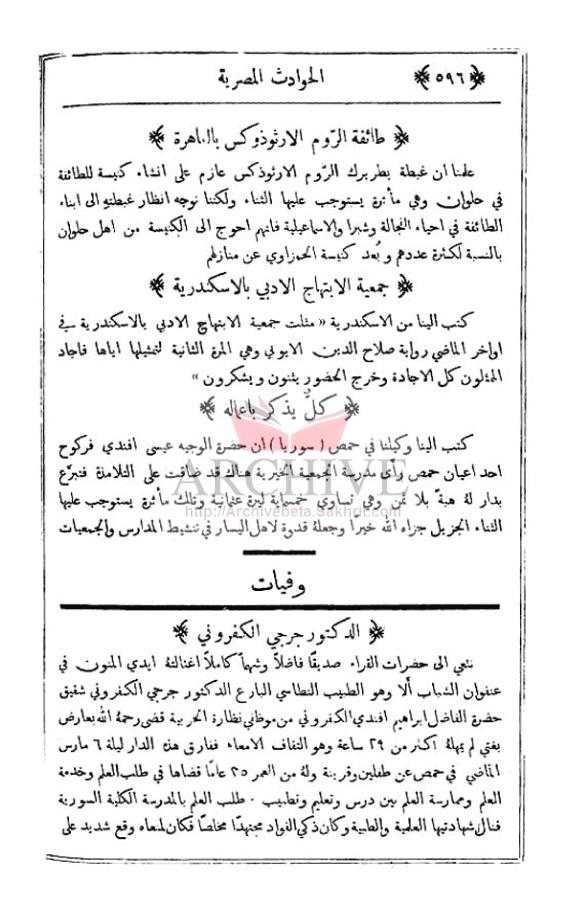 ﴿ ٥٩٦ ﴾ الحوادث المصرية
﴿ طائفة الرّوم الارثوذوكس بالقاهرة ﴾
علمنا ان غبطة بطريرك الرّوم الارثوذكس عازم على انشاء كنيسة للطائفة
في حلوان وهي مأثرة يستوجب عليها الثناء ولكننا نوجه انظار غبطتو الى ابناء
الطائفة في احياء الفجالة وشبرا والاسماعيلية فانهم احوج الى الكنيسة من اهل حلوان
بالنسبة لكثرة عددهم و بُعد كنيسة الحمزاوي عن منازلهم
﴿ جمعية الابتهاج الادبي بالاسكندرية ﴾
كتب الينا من الاسكندرية « مثلت جمعية الابتهاج الادبي بالاسكندرية في
اواخر الماضي رواية صلاح الدين الايوبي وهي المرة الثانية لتمثيلها اياها فاجاد
الممثلون كل الاجادة وخرج الحضور يثنون و يشكرون »
﴿ كلٌّ يذكر باعماله ﴾
كتب الينا وكيلنا في حمص ( سوريا ) ان حضرة الوجيه عيسى افندي فركوح
احد اعيان حمص رأى مدرسة الجمعية الخيرية هناك قد ضاقت على التلامذة فتبرّع
بدار لهُ هبةً بلا ثمن وهي تساوي خمسماية ليرة عثمانية وتلك مأثرة يستوجب عليها
الثناء الجزيل جزاه الله خيرًا وجعلهُ قدوة لاهل اليسار في تنشيط المدارس والجمعيات
ARCHIVE
http://Archivebeta.Sakhrit.com
وفيات
﴿ الدكتور جرجي الكفروني ﴾
ننعي الى حضرات القراء صديقًا فاضلاً وشهماً كاملاً اغتالتهُ ايدي المنون في
عنفوان الشباب ألا وهو الطبيب النطاسي البارع الدكتور جرجي الكفروني شقيق
حضرة الفاضل ابراهيم افندي الكفروني من موظفي نظارة الحربية قضى رحمهُ الله بعارض
بغتي لم يمهلهُ اكثر من ٢٩ ساعة وهو التفاف الامعاء ففارق هذه الدار ليلة ٦ مارس
الماضي في حمص عن طفلين وقرينة ولهُ من العمر ٣٥ عامًا قضاها في طلب العلم وخدمة
العلم وممارسة العلم بين درس وتعليم وتطبيب . طلب العلم بالمدرسة الكلية السورية
فنال شهادتيها العلمية والطبية وكان ذكي الفواد مجتهدًا مخلصًا فكان لمنعاه وقع شديد على